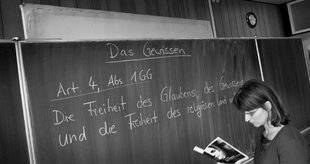 Das Gewissen
Art. 4, Abs. 1 GG
Die Freiheit des Glaubens, des Gewissens
und die Freiheit des religiösen und